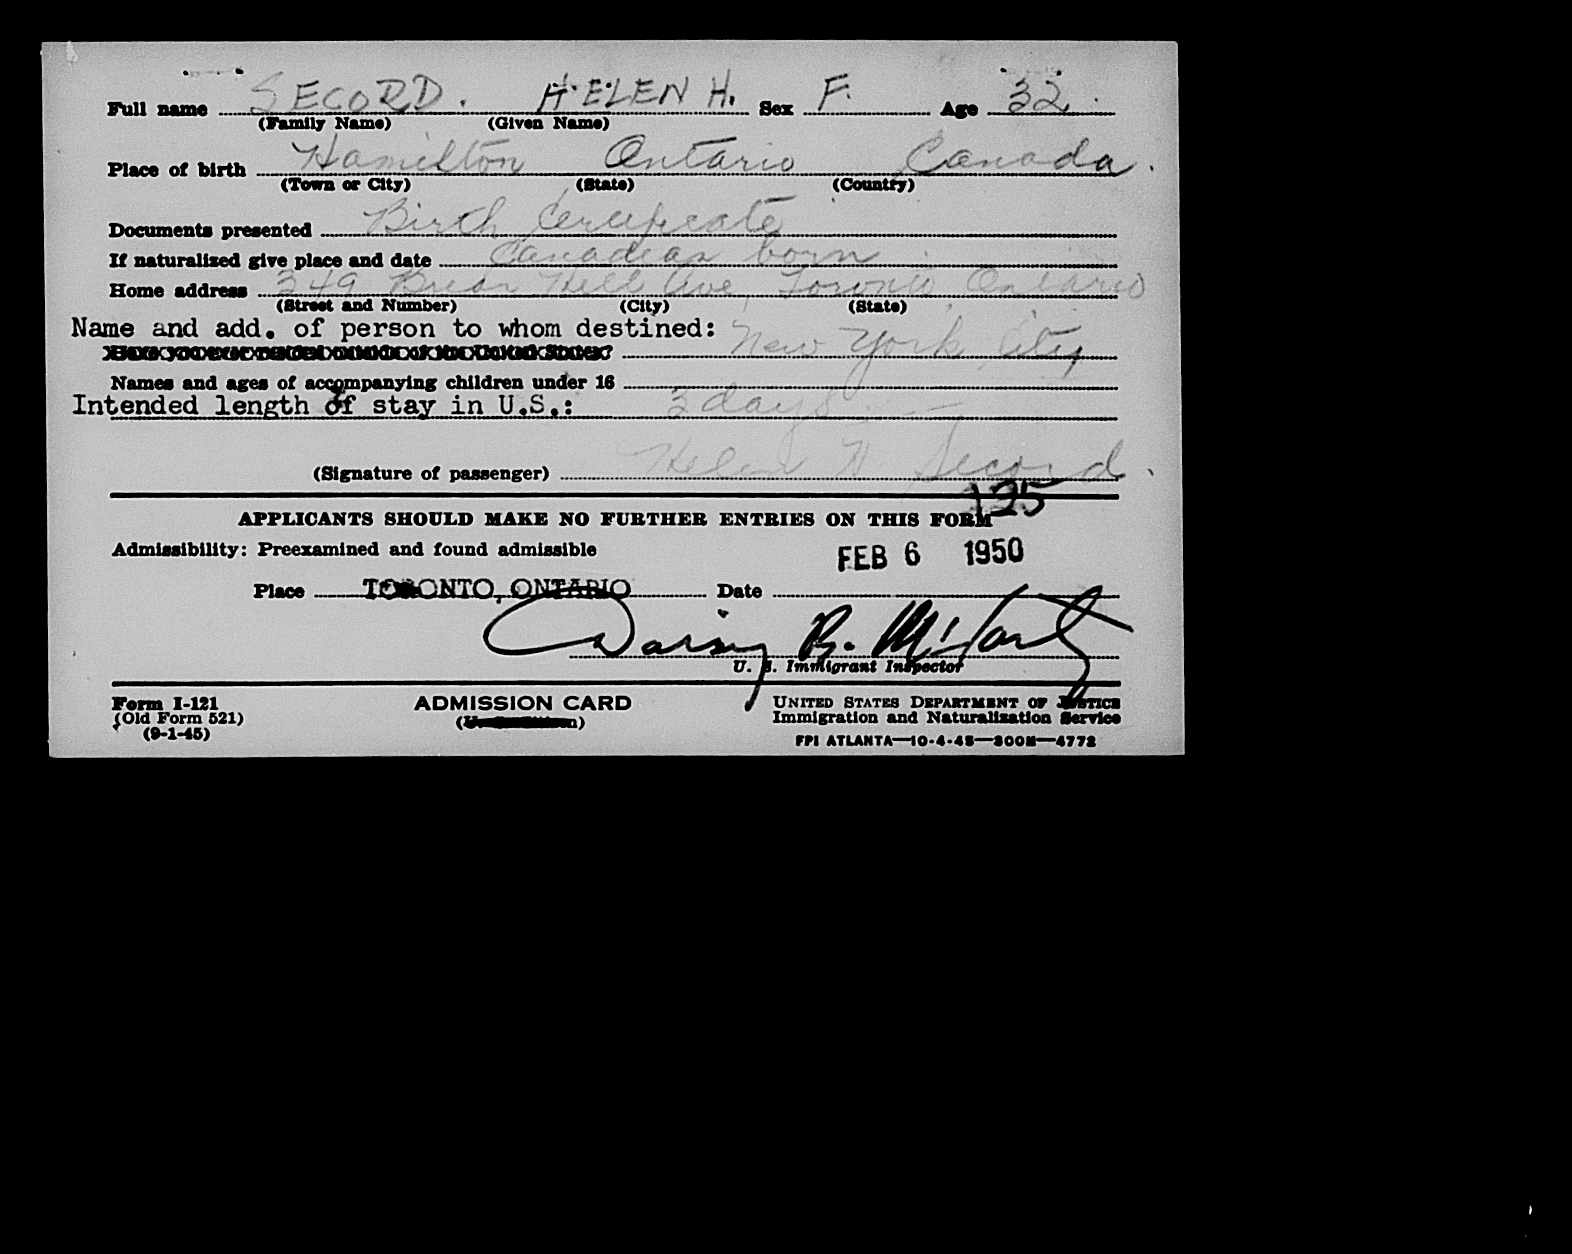 Full name SECORD. HELEN H. Sex F. Age 32.
(Family Name) (Given Name)
Place of birth Hamilton Ontario Canada.
(Town or City) (State) (Country)
Documents presented Birth Certificate
If naturalized give place and date Canadian born
Home address 349 Briar Hill Ave, Toronto Ontario
(Street and Number) (City) (State)
Name and add. of person to whom destined: New York City
Names and ages of accompanying children under 16
Intended length of stay in U.S.: 3 days
(Signature of passenger) Helen H Secord.
125
APPLICANTS SHOULD MAKE NO FURTHER ENTRIES ON THIS FORM
Admissibility: Preexamined and found admissible
FEB 6 1950
Place TORONTO, ONTARIO Date
Daisy B.
U. S. Immigrant Inspector
Form I-121 ADMISSION CARD UNITED STATES DEPARTMENT OF JUSTICE
(Old Form 521) Immigration and Naturalization Service
(9-1-45)
FPI ATLANTA—10-4-45—300M—4772